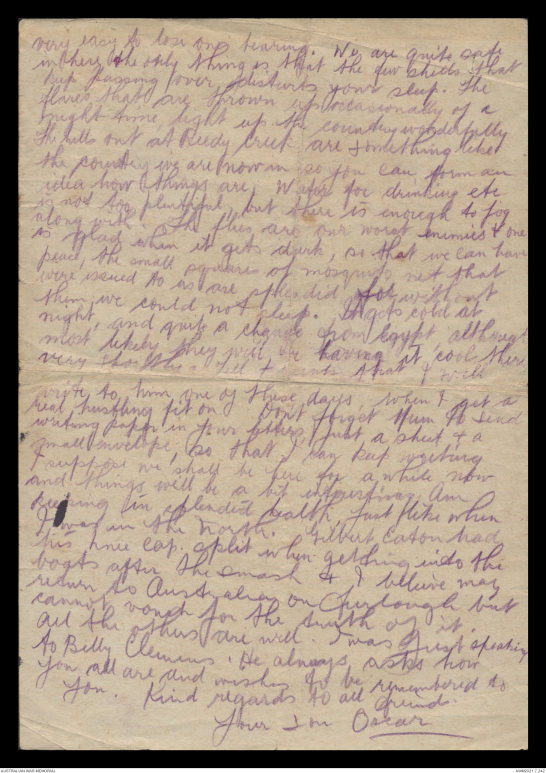 very easy to lose ones bearing. We are quite safe
in here & the only thing is that the few shells that
keep passing over disturbs your sleep. The
flares that are thrown up occasionally of a
night-time, light up the country wonderfully
The hills out at Reedy Creek are something like
the country we are now in so you can form an
idea how things are. Water for drinking etc
is not too plentiful, but there is enough to jog
along with. The flies, are our worst enimies & one
is glad when it gets dark, so that we can have
peace, the small squares of mosquito net that
were issued to us are splendid for without
them, we could not sleep. It gets cold at
night, and quite a change from Egypt although
most likely they will be having it cool there
very shortly. Tell that I will
write to him one of these days, when I get a
real hustling fit on. Dont forget Mum to send
writing paper in your letters, just a sheet & a
small envelope, so that I can keep writing
I suppose we shall be here for a while now
and things will be a bit interesting. Am
keeping in splendid health, just like when
I was in the North. Gilbert Caton had
his knee cap split when getting into the
boats after the smash & I believe may
return to Australia on furlough but
cannot vouch for the truth of it.
All the others are well. I was just speaking
to Billy Clemens. He always asks how
you all are and wishes to be remembered to
you. Kind regards to all friends.
Your Son Oscar
AUSTRALIAN WAR MEMORIAL